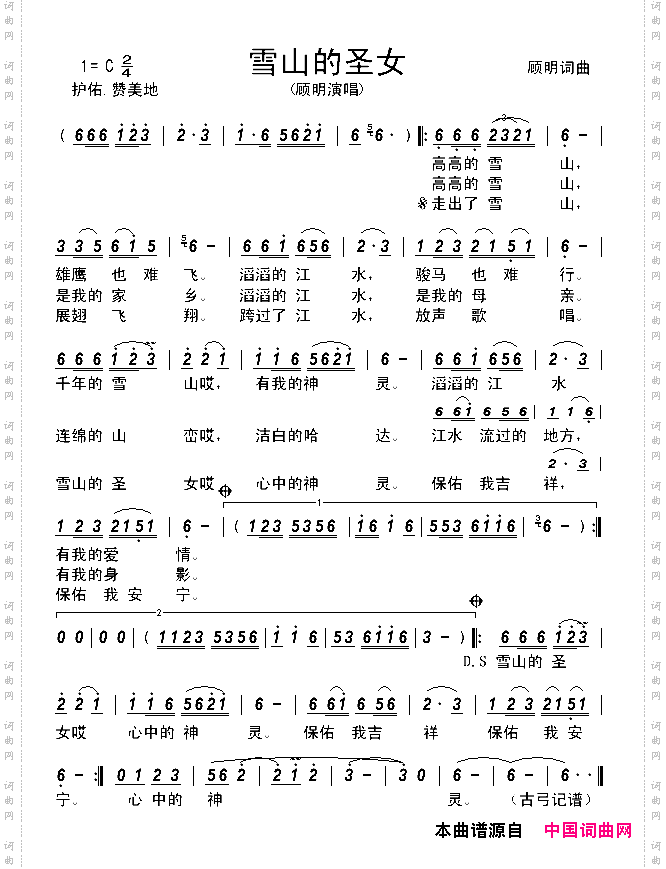 雪山的圣女
1=C 2/4
顾明词曲
护佑.赞美地
(顾明演唱)
( 666 123 | 2·3 | 1·6 5621 | 6 6· ) ‖: 6 6 6 2321 | 6 - |
高高的 雪 山,
高高的 雪 山,
走出了 雪 山,
3 3 5 6 1 5 | 6 - | 6 6 1 656 | 2·3 | 1 2 3 2 1 5 1 | 6 - |
雄鹰 也 难 飞。 滔滔的 江 水, 骏马 也 难 行。
是我的 家 乡。 滔滔的 江 水, 是我的 母 亲。
展翅 飞 翔。 跨过了 江 水, 放声 歌 唱。
6 6 6 1 2 3 | 2 2 1 | 1 1 6 5621 | 6 - | 6 6 1 656 | 2·3 |
千年的 雪 山哎, 有我的神 灵。 滔滔的 江 水
6 61 6 5 6 | 1 1 6 |
连绵的 山 峦哎, 洁白的哈 达。 江水 流过的 地方,
2·3 |
雪山的 圣 女哎 心中的神 灵。 保佑 我吉 祥,
1
1 2 3 2151 | 6 - | ( 123 5356 | 16 1 6 | 553 6116 | 3 - ) :‖
有我的爱 情。
有我的身 影。
保佑 我 安 宁。
2
0 0 | 0 0 | ( 1123 5356 | 1 1 6 | 53 6116 | 3 - ) ‖: 6 6 6 123 |
D.S 雪山的 圣
2 21 | 1 1 6 5621 | 6 - | 6 61 656 | 2·3 | 123 2151 |
女哎 心中的 神 灵。 保佑 我吉 祥 保佑 我 安
6 - :‖ 01 23 | 562 2 | 212 | 3 - | 3 0 | 6 - | 6 - | 6· ‖
宁。 心 中的 神 灵。 (古弓记谱)
本曲谱源自 中国词曲网